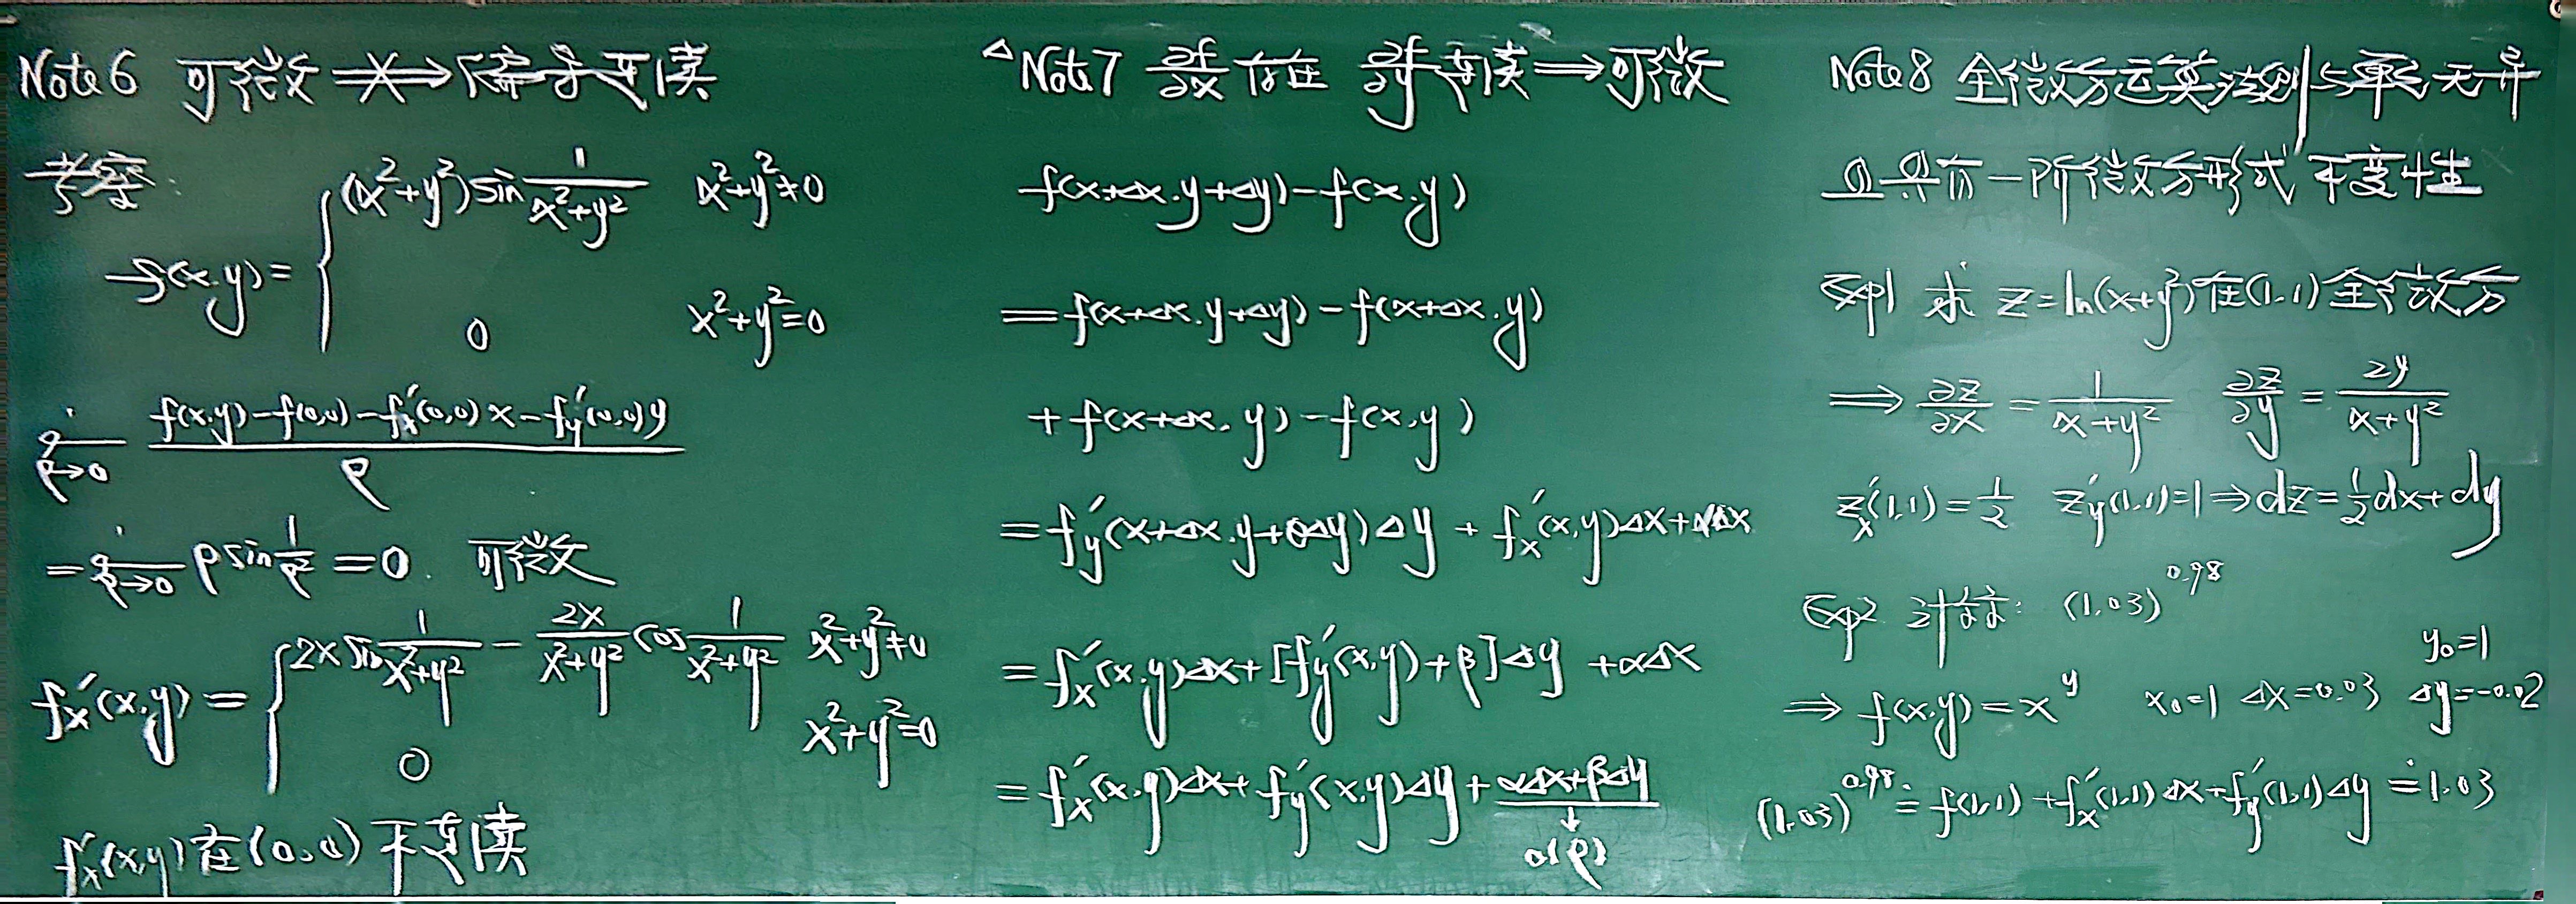 Note 6 可微 ⇏ 偏导连续
考察:
f(x,y) = { (x²+y²) sin 1/(x²+y²)  x²+y²≠0
0  x²+y²=0
lim ρ→0 (f(x,y)-f(0,0)-fx'(0,0)x-fy'(0,0)y)/ρ
= lim ρ→0 ρ sin 1/ρ² = 0. 可微
fx'(x,y) = { 2x sin 1/(x²+y²) - 2x/(x²+y²) cos 1/(x²+y²)  x²+y²≠0
0  x²+y²=0
fx'(x,y) 在(0,0) 不连续
△Note 7 ∂f/∂x 存在 ∂f/∂y 连续 ⇒ 可微
f(x+△x,y+△y)-f(x,y)
= f(x+△x,y+△y)-f(x+△x,y)
+ f(x+△x,y)-f(x,y)
= fy'(x+△x,y+θ△y)△y + fx'(x,y)△x+α△x
= fx'(x,y)△x+[fy'(x,y)+β]△y +α△x
= fx'(x,y)△x+fy'(x,y)△y+α△x+β△y
↓
o(ρ)
Note 8 全微分运算法则与单元无异
且具有一阶微分形式不变性
Exp1 求 z=ln(x+y²)在(1,1)全微分
⇒ ∂z/∂x = 1/(x+y²)  ∂z/∂y = 2y/(x+y²)
zx'(1,1)=1/2  zy'(1,1)=1 ⇒ dz=1/2dx+dy
Exp2 计算: (1.03)^0.98
y₀=1
⇒ f(x,y)=x^y  x₀=1 △x=0.03 △y=-0.02
(1.03)^0.98 ≐ f(1,1)+fx'(1,1)△x+fy'(1,1)△y ≐ 1.03